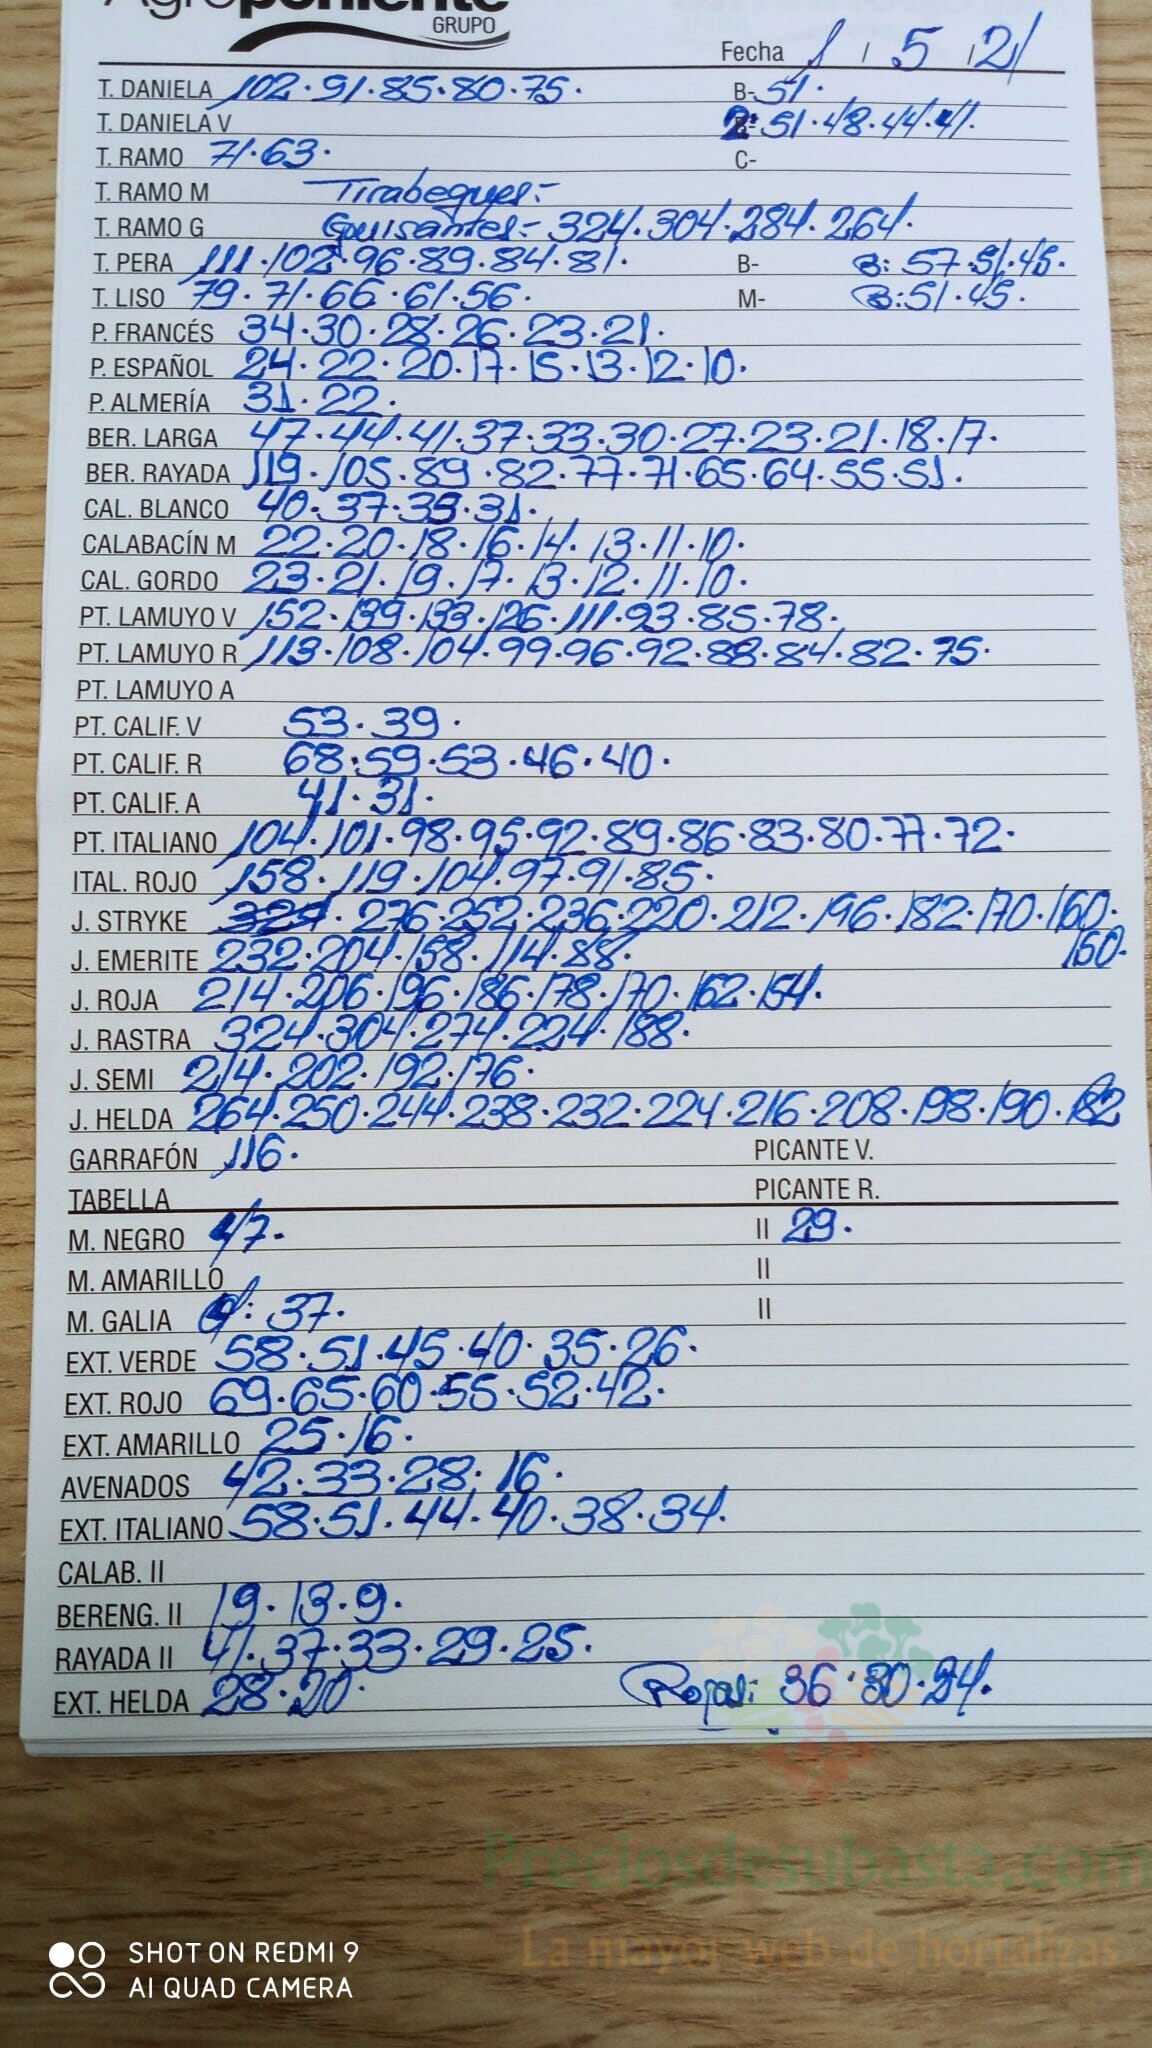 Agroponiente
GRUPO
Fecha 1 / 5 / 21
T. DANIELA 102·91·85·80·75· B- 51·
T. DANIELA V 2: 51·48·44·41·
T. RAMO 71·63· C-
T. RAMO M Tirabeques:-
T. RAMO G Guisantes:- 324·304·284·264·
T. PERA 111·102·96·89·84·81· B- B: 57·51·45·
T. LISO 79·71·66·61·56· M- B: 51·45·
P. FRANCÉS 34·30·28·26·23·21·
P. ESPAÑOL 24·22·20·17·15·13·12·10·
P. ALMERÍA 31·22·
BER. LARGA 47·44·41·37·33·30·27·23·21·18·17·
BER. RAYADA 119·105·89·82·77·71·65·64·55·51·
CAL. BLANCO 40·37·33·31·
CALABACÍN M 22·20·18·16·14·13·11·10·
CAL. GORDO 23·21·19·17·13·12·11·10·
PT. LAMUYO V 152·139·133·126·111·93·85·78·
PT. LAMUYO R 113·108·104·99·96·92·88·84·82·75·
PT. LAMUYO A
PT. CALIF. V 53·39·
PT. CALIF. R 68·59·53·46·40·
PT. CALIF. A 41·31·
PT. ITALIANO 104·101·98·95·92·89·86·83·80·77·72·
ITAL. ROJO 158·119·104·97·91·85·
J. STRYKE 276·252·236·220·212·196·182·170·160·
J. EMERITE 232·204·158·114·88· 150·
J. ROJA 214·206·196·186·178·170·162·154·
J. RASTRA 324·304·274·224·188·
J. SEMI 214·202·192·176·
J. HELDA 264·250·244·238·232·224·216·208·198·190·182
GARRAFÓN 116· PICANTE V.
TABELLA PICANTE R.
M. NEGRO 47· II 29·
M. AMARILLO II
M. GALIA : 37· II
EXT. VERDE 58·51·45·40·35·26·
EXT. ROJO 69·65·60·55·52·42·
EXT. AMARILLO 25·16·
AVENADOS 42·33·28·16·
EXT. ITALIANO 58·51·44·40·38·34·
CALAB. II
BERENG. II 19·13·9·
RAYADA II 41·37·33·29·25·
EXT. HELDA 28·20· Rojas: 36·30·24·
Preciosdesubasta.com
La mayor web de hortalizas
SHOT ON REDMI 9
AI QUAD CAMERA